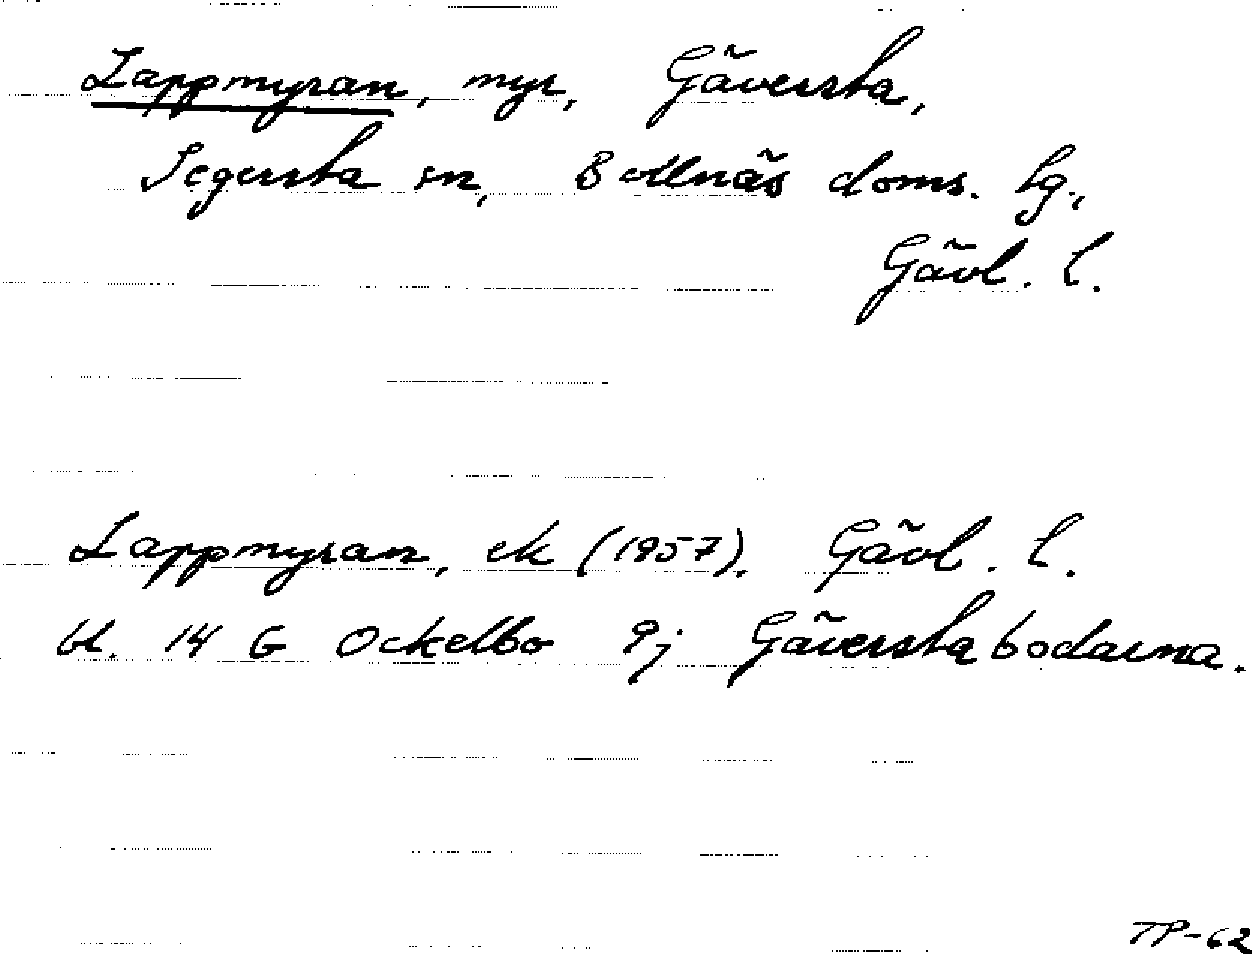 Lappmyran, myr, Gäversta,
Segersta sn, Bollnäs doms. lg.,
Gävl. l.
Lappmyran, ek (1957). Gävl. l.
bl. 14 G Ockelbo 9j Gäverstabodarna.
TP-62